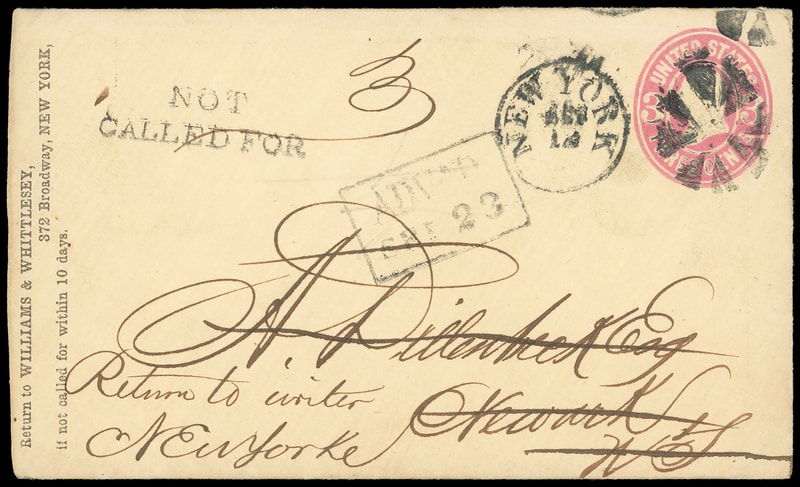 Return to WILLIAMS & WHITTLESEY,
372 Broadway, NEW YORK,
if not called for within 10 days.
NOT
CALLED FOR
3
NEW YORK
12
UNITED STATES
3 3
ADV'D
SEP 23
A Esq
Newark
Return to writer
New Yorke